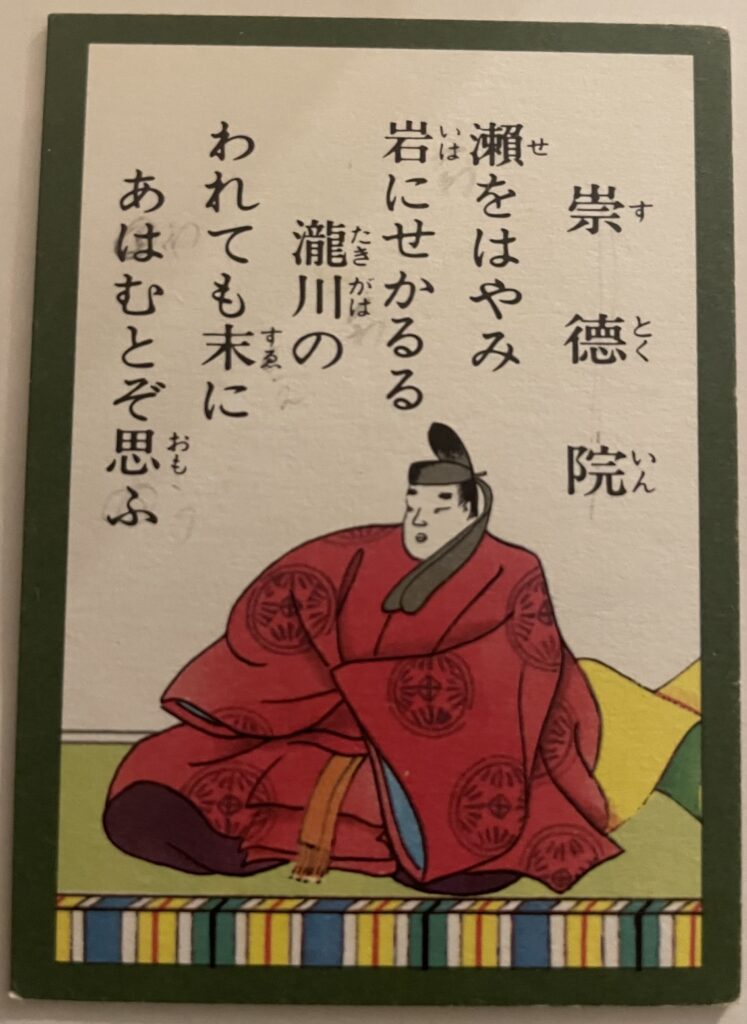 崇徳院
瀬をはやみ
岩にせかるる
瀧川の
われても末に
あはむとぞ思ふ
す
とく
いん
せ
いは
たき
がは
すゑ
おも